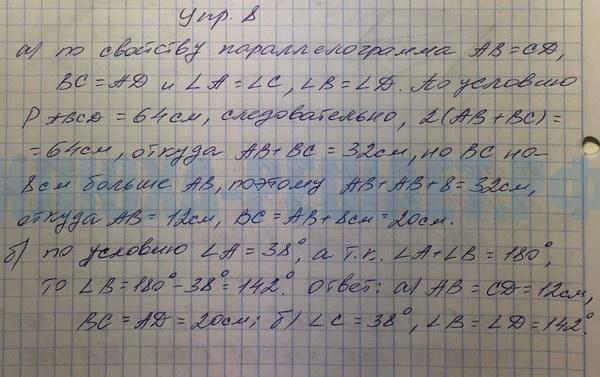 Упр. 8
а) по свойству параллелограмма AB=CD,
BC=AD и ∠A=∠C, ∠B=∠D. По условию
P ABCD = 64см, следовательно, 2(AB+BC)=
=64см, откуда AB+BC=32см, но BC на
8см больше AB, поэтому AB+AB+8=32см,
откуда AB=12см, BC=AB+8см=20см.
б) по условию ∠A=38°, а т.к. ∠A+∠B=180°,
то ∠B=180°-38°=142°. Ответ: а) AB=CD=12см,
BC=AD=20см; б) ∠C=38°, ∠B=∠D=142°.